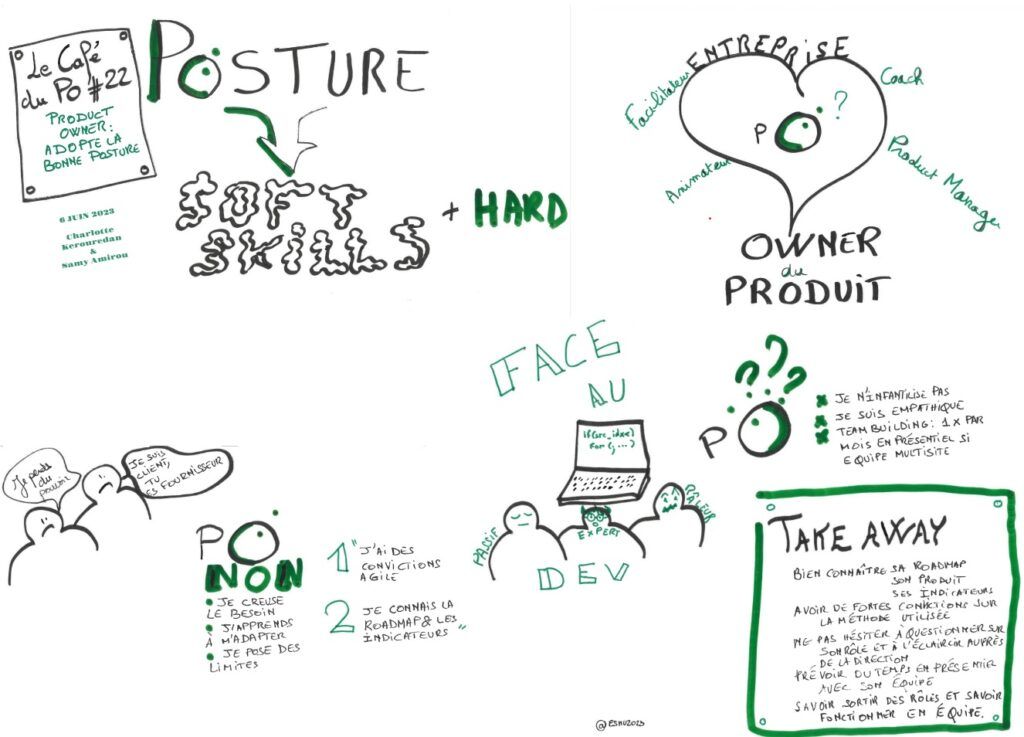 Le Café
du PO #22
PRODUCT
OWNER:
ADOPTE LA
BONNE POSTURE
6 JUIN 2023
Charlotte
Kerouredan
&
Samy Amirou
POSTURE
SOFT
SKILLS
+ HARD
ENTREPRISE
Facilitateur
Coach
PO ?
Animateur
Product Manager
OWNER
du
PRODUIT
Je perds
du
pouvoir
JE SUIS
CLIENT,
TU
ES FOURNISSEUR
PO
NON
JE CREUSE
LE BESOIN
J'APPRENDS
À M'ADAPTER
JE POSE DES
LIMITES
1 "J'AI DES
CONVICTIONS
AGILE
2 JE CONNAIS LA
ROADMAP & LES
INDICATEURS"
FACE
AU
if(src_idx<)
for (; ...)
PASSIF
EXPERT
RALEUR
DEV
???
PO
JE N'INFANTILISE PAS
JE SUIS EMPATHIQUE
TEAM BUILDING: 1X PAR
MOIS EN PRÉSENTIEL SI
EQUIPE MULTISITE
TAKE AWAY
BIEN CONNAÎTRE SA ROADMAP
SON PRODUIT
SES INDICATEURS
AVOIR DE FORTES CONVICTIONS SUR
LA MÉTHODE UTILISÉE
NE PAS HÉSITER À QUESTIONNER SUR
SON RÔLE ET À L'ÉCLAIRCIR AUPRÈS
DE LA DIRECTION
PRÉVOIR DU TEMPS EN PRÉSENTIEL
AVEC SON ÉQUIPE
SAVOIR SORTIR DES RÔLES ET SAVOIR
FONCTIONNER EN ÉQUIPE.